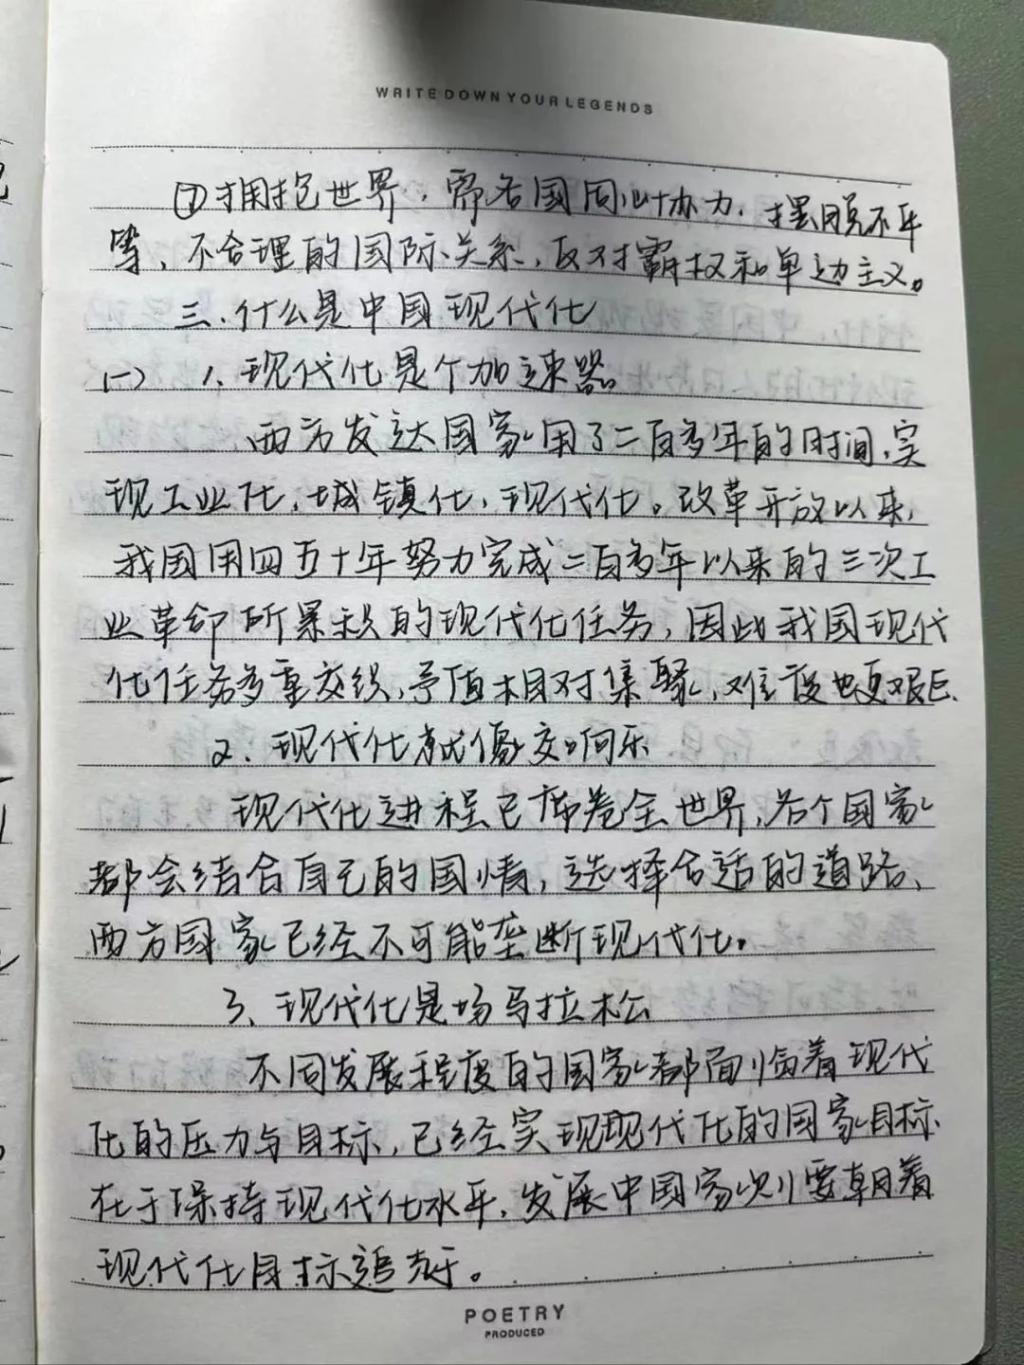 WRITE DOWN YOUR LEGENDS
⑦拥抱世界,需各国同心协力,摆脱不平
等,不合理的国际关系,反对霸权和单边主义。
三.什么是中国现代化
(一) 1.现代化是个加速器
西方发达国家用了二百多年的时间,实
现工业化,城镇化,现代化。改革开放以来,
我国用四五十年努力完成二百多年以来的三次工
业革命所累积的现代化任务,因此我国现代
化任务多重交织,予值相对集聚,难度也更艰巨.
2.现代化就像交响乐
现代化进程已席卷全世界,各个国家
都会结合自己的国情,选择合适的道路、
西方国家已经不可能垄断现代化。
3、现代化是场马拉松
不同发展程度的国家都面临着现代
化的压力与目标,已经实现现代化的国家目标
在于保持现代化水平,发展中国家则要朝着
现代化目标追赶。
POETRY
PRODUCED